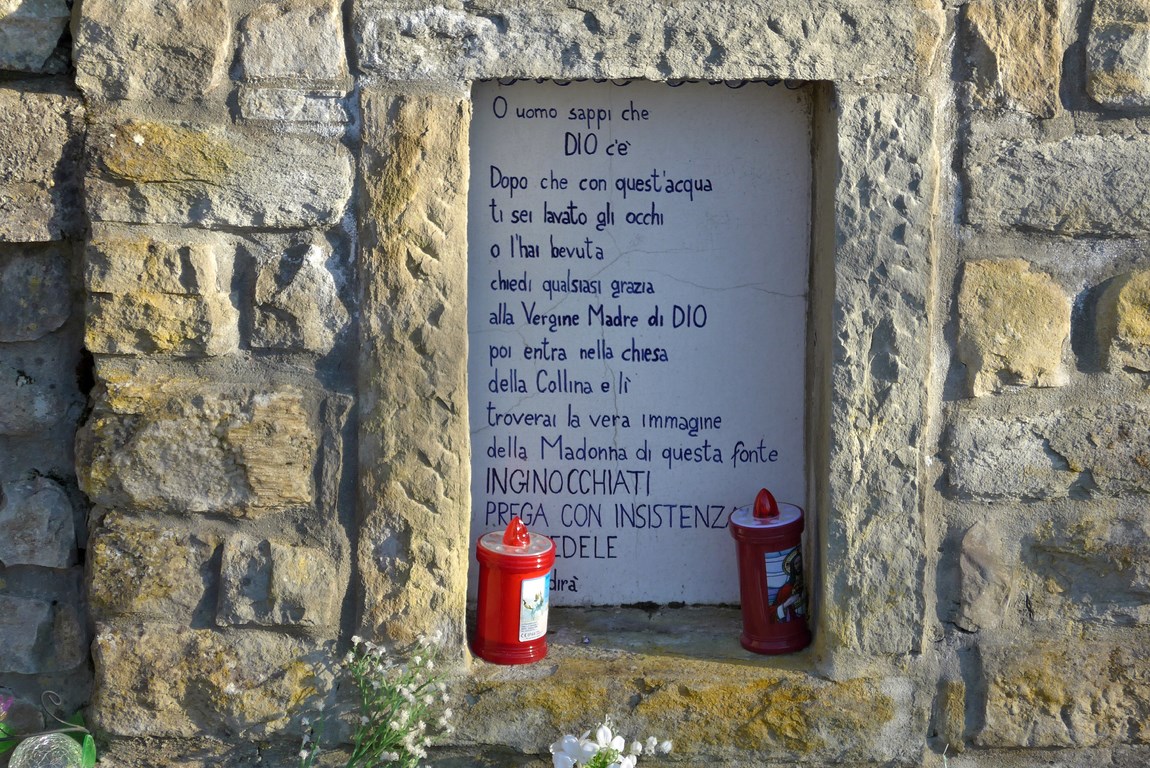 O uomo sappi che
DIO c'è
Dopo che con quest'acqua
ti sei lavato gli occhi
o l'hai bevuta
chiedi qualsiasi grazia
alla Vergine Madre di DIO
poi entra nella chiesa
della Collina e lì
troverai la vera immagine
della Madonna di questa fonte
INGINOCCHIATI
PREGA CON INSISTENZA
EDELE
dirà